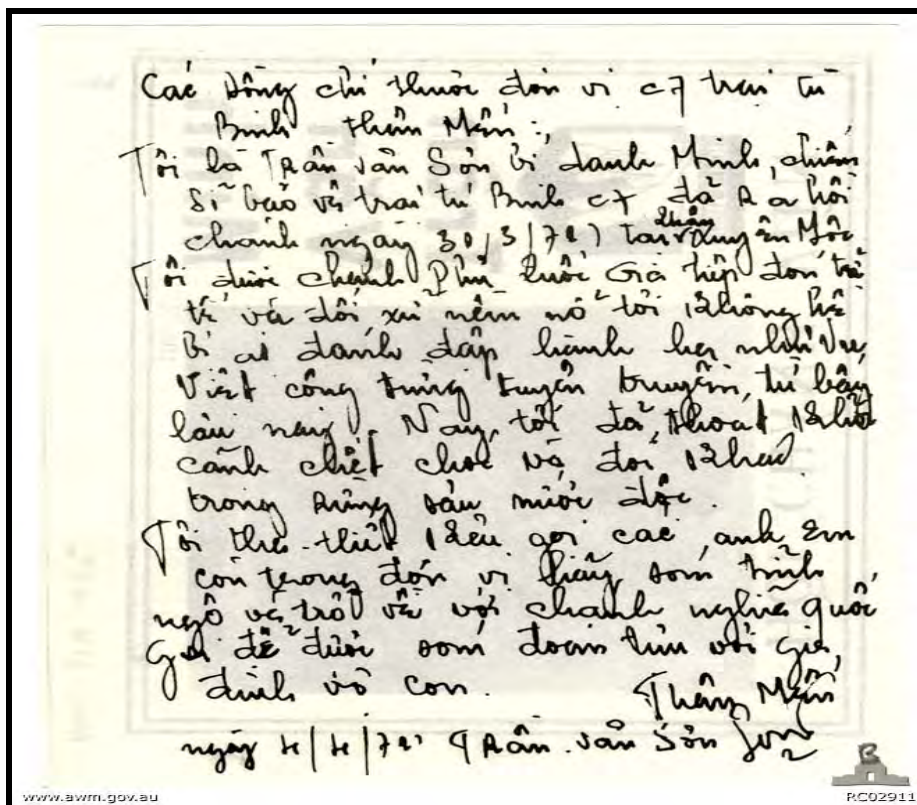 Các Đồng chí thuộc đơn vị c7 trại tù
Binh thân Mến:
Tôi là Trần văn Sơn bí danh Minh, chiến
sĩ bảo vệ trại tù Binh c7 đã Ra hồi
chánh ngày 30/3/71 tại quận Xuyên Mộc
Tôi được chánh Phủ Quốc Gia tiếp đón tử
tế và đối xử nên nỗ tôi không hề
Bị ai đánh đập hành hạ như
Việt cộng từng tuyên truyền, từ bấy
lâu nay. Nay, tôi đã thoát khỏi
cảnh chết chóc và đói khác
trong rừng sâu nước độc.
Tôi tha thiết kêu gọi các anh em
còn trong đơn vị hãy sớm tỉnh
ngộ và trở về với chánh nghĩa quốc
Gia để được sớm đoàn tựu với gia
đình vô con.
Thân Mến
ngày 4/4/71 Trần văn Sơn
B
www.awm.gov.au
RC02911